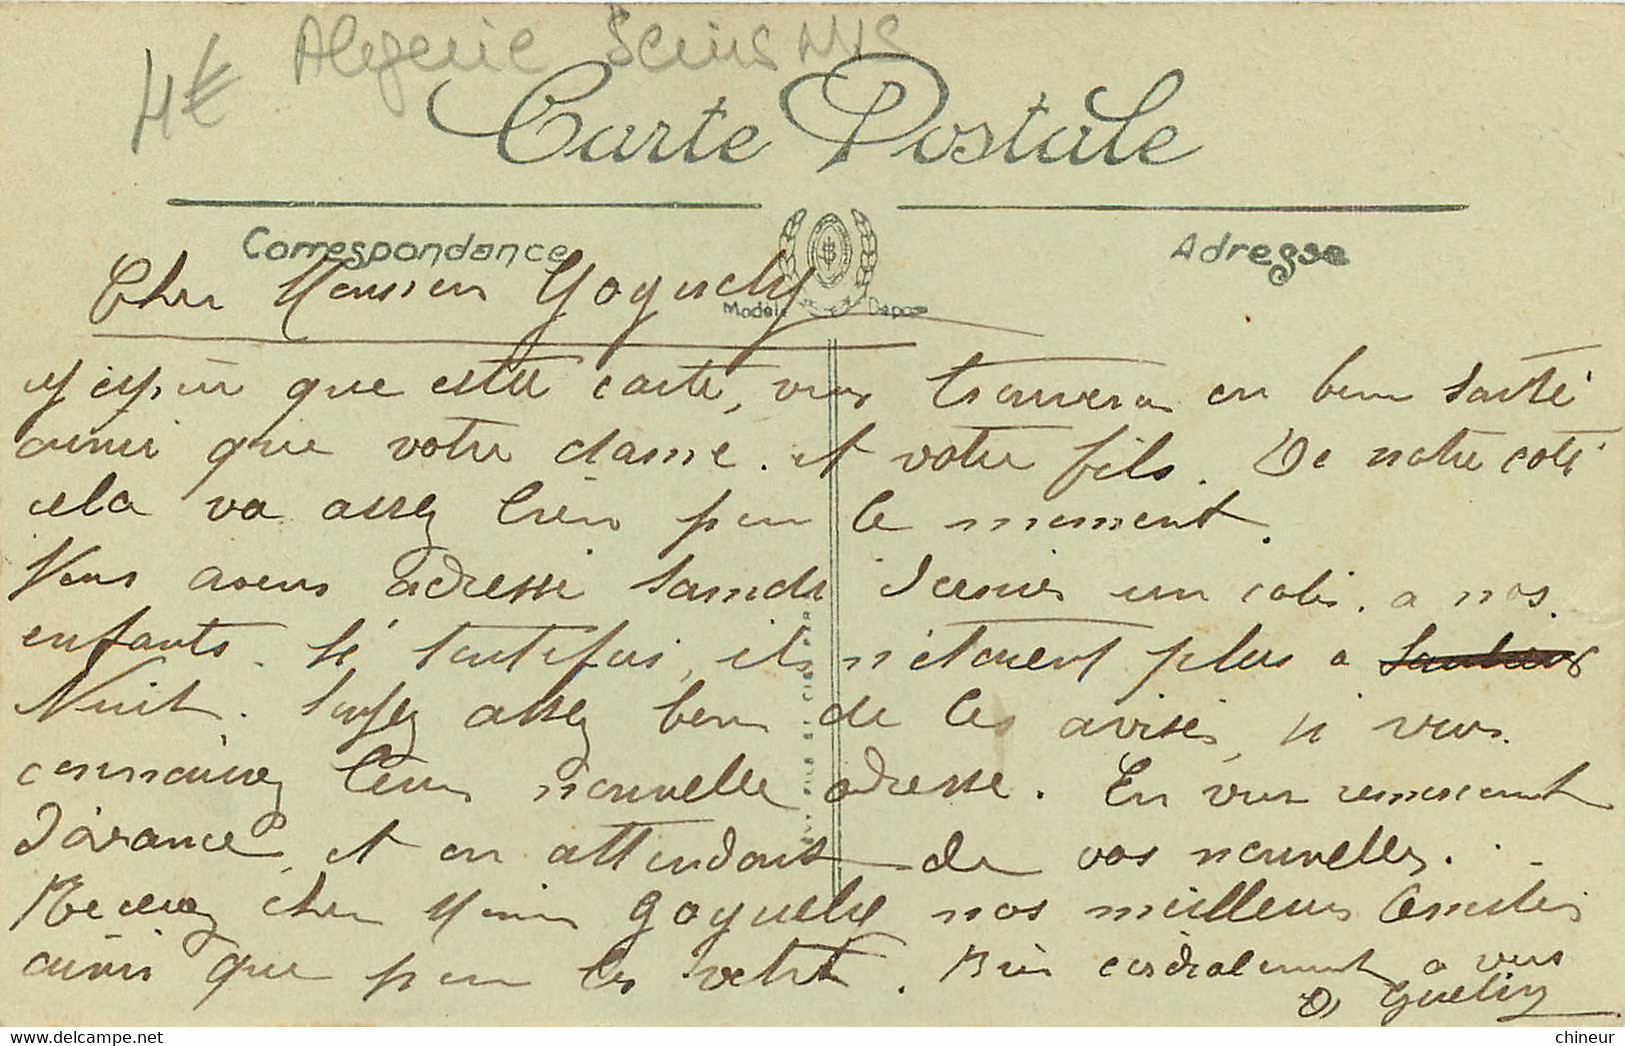 4€ Algerie Scènes
Carte Postale
Correspondance
Adresse
Cher Monsieur Goguely
Modèle Déposé
J'espère que cette carte, vous trouvera en bonne santé
ainsi que votre dame. et votre fils. De notre coté
cela va assez bien pour le moment.
Nous avons adressé samedi dernier un colis. a nos
enfants. si toutefois, ils n'étaient plus a
Nuit. soyez assez bon de les avisés, si vous
connaissez leur nouvelle adresse. En vous remerciant
d'avance, et en attendant de vos nouvelles.
Recevez cher Mr Goguely nos meilleurs amitiés
ainsi que pour les votre. Bien cordialement a vous
Guelin
chineur